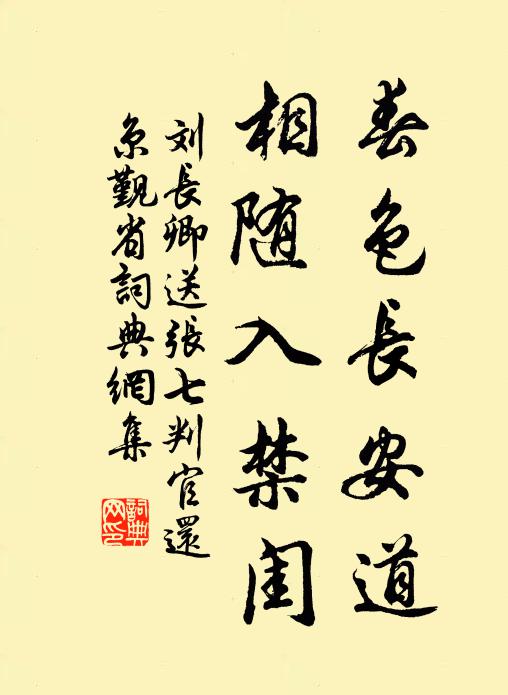 春色長安道
相随入禁闺
刘長卿送張七判官還
京觐省詞典網集
詞典网印